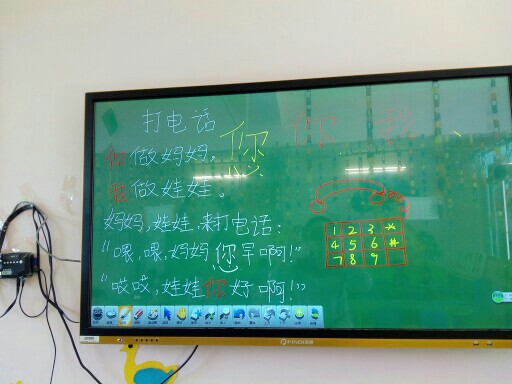 打电话
你做妈妈，
我做娃娃。
妈妈，娃娃，来打电话：
“喂，喂，妈妈您早啊！”
“哎哎，娃娃你好啊！”
您
你 我
1 2 3 *
4 5 6 #
7 8 9